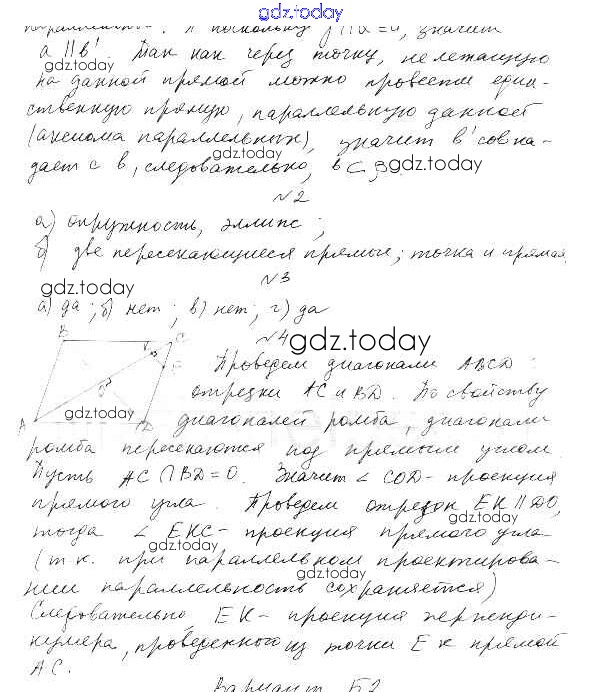 gdz.today
параллельно. А поскольку β || a = a, значит
a || b'. Так как через точку, не лежащую
gdz.today
на данной прямой можно провести един-
ственную прямую, параллельную данной
(аксиома параллельных), значит b' совпа-
gdz.today
дает с b, следовательно, b ⊂ β gdz.today
№2
а) окружность, эллипс;
б) две пересекающиеся прямые; точка и прямая
№3
gdz.today
а) да; б) нет; в) нет; г) да
№4 gdz.today
B C
K
E
Проведем диагонали ABCD:
O
отрезки AC и BD. По свойству
gdz.today
A D
диагоналей ромба, диагонали
ромба пересекаются под прямым углом.
Пусть AC ∩ BD = O. Значит ∠ COD - проекция
прямого угла. Проведем отрезок EK || DO,
gdz.today
тогда ∠ EKC - проекция прямого угла
gdz.today
(т.к. при параллельном проектирова-
gdz.today
нии параллельность сохраняется)
Следовательно, EK - проекция перпенди-
gdz.today
куляра, проведенного из точки E к прямой
AC.
Вариант Б2